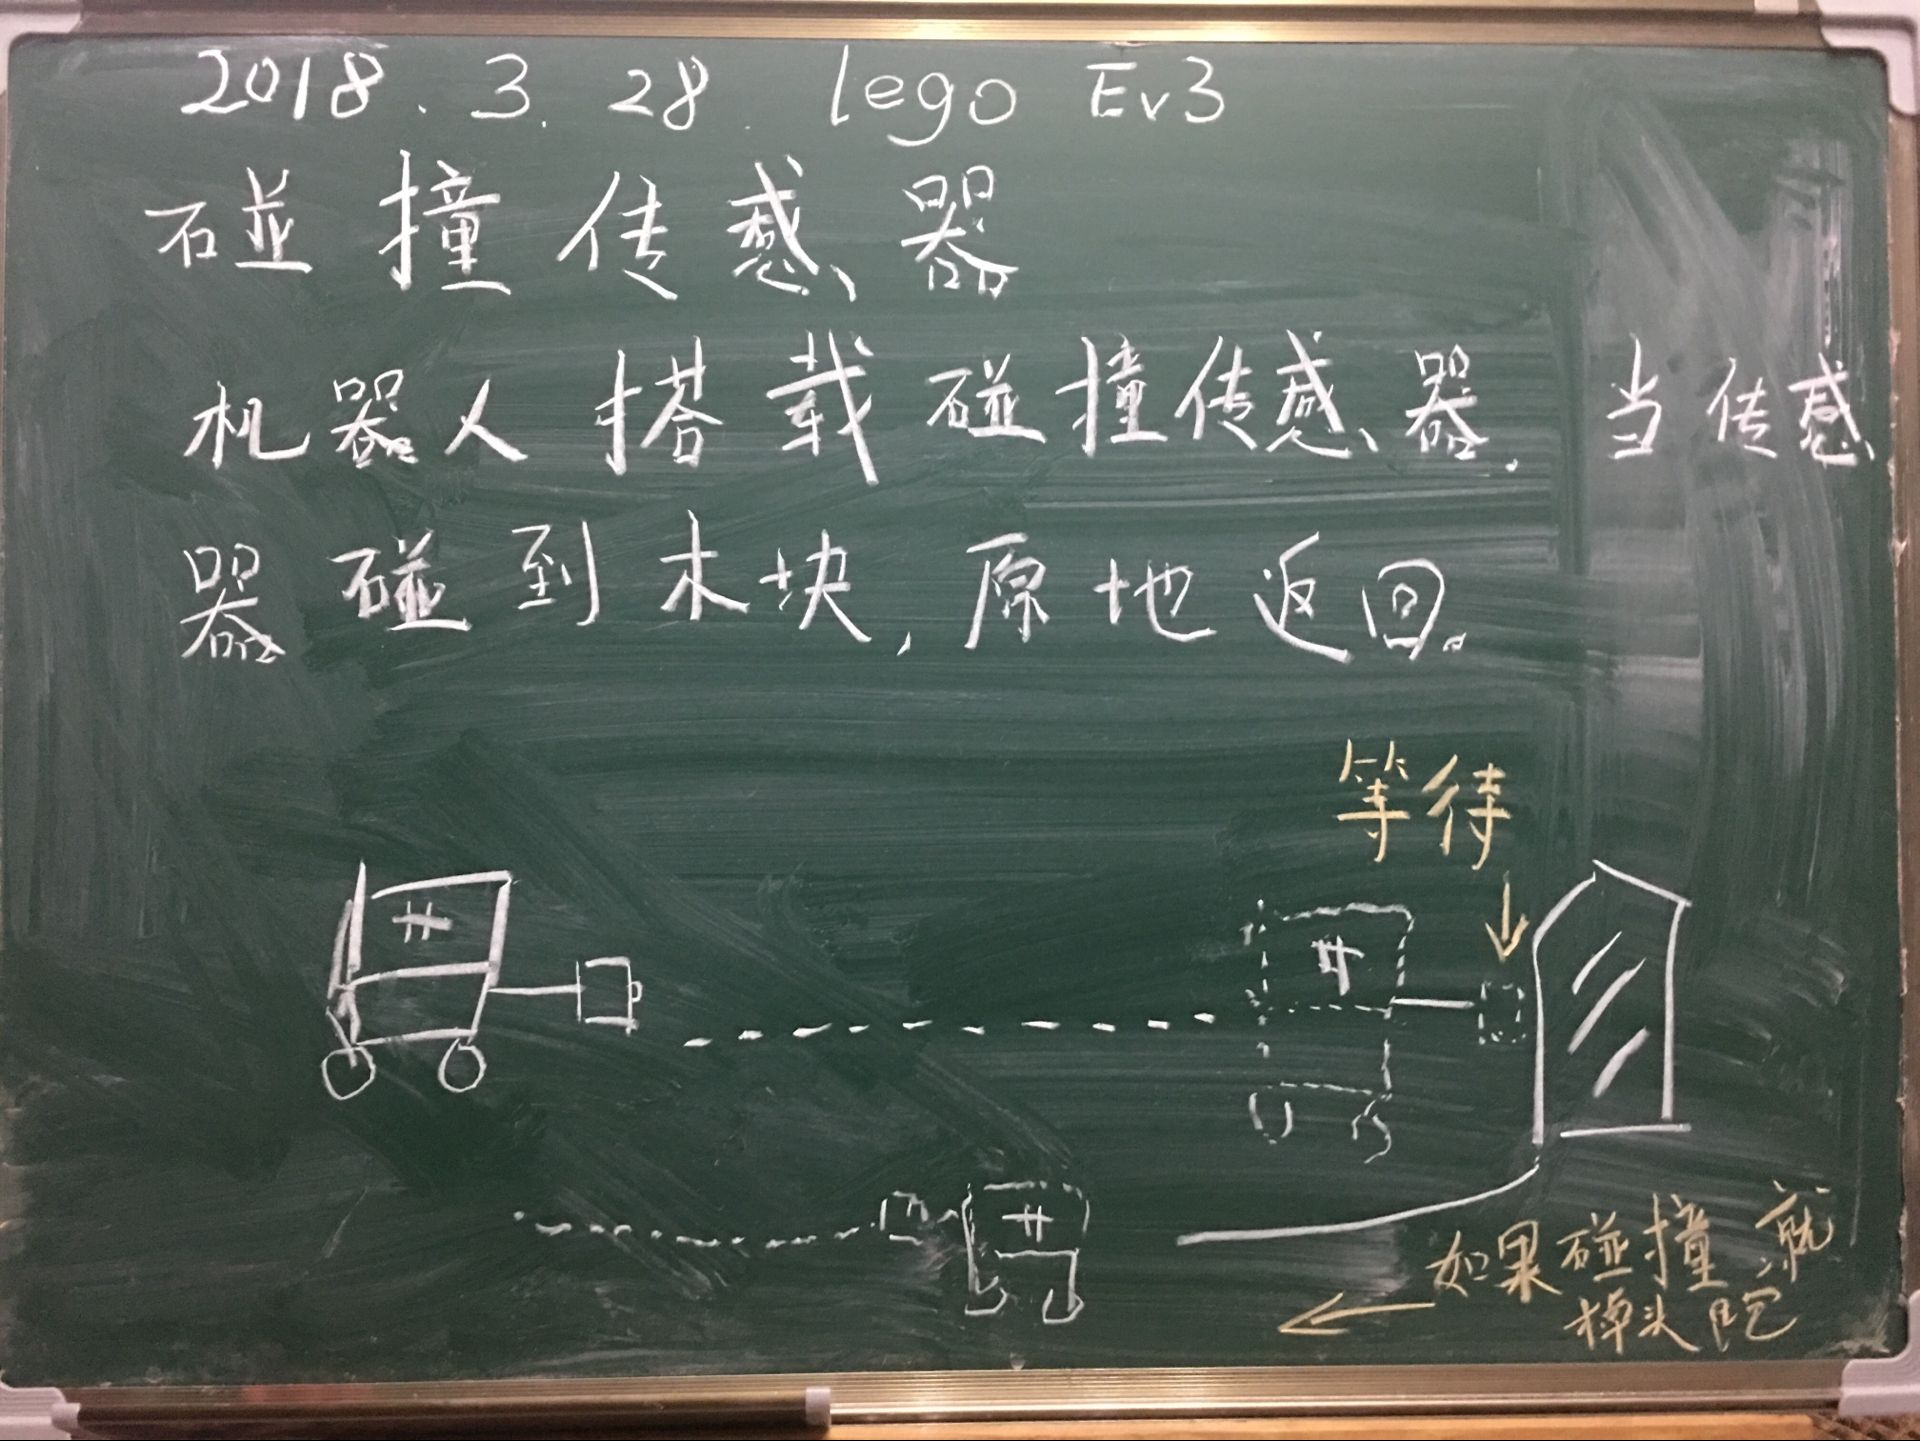 2018.3.28. lego Ev3
碰撞传感器
机器人搭载碰撞传感器.当传感
器碰到木块,原地返回。
等待
如果碰撞就
掉头